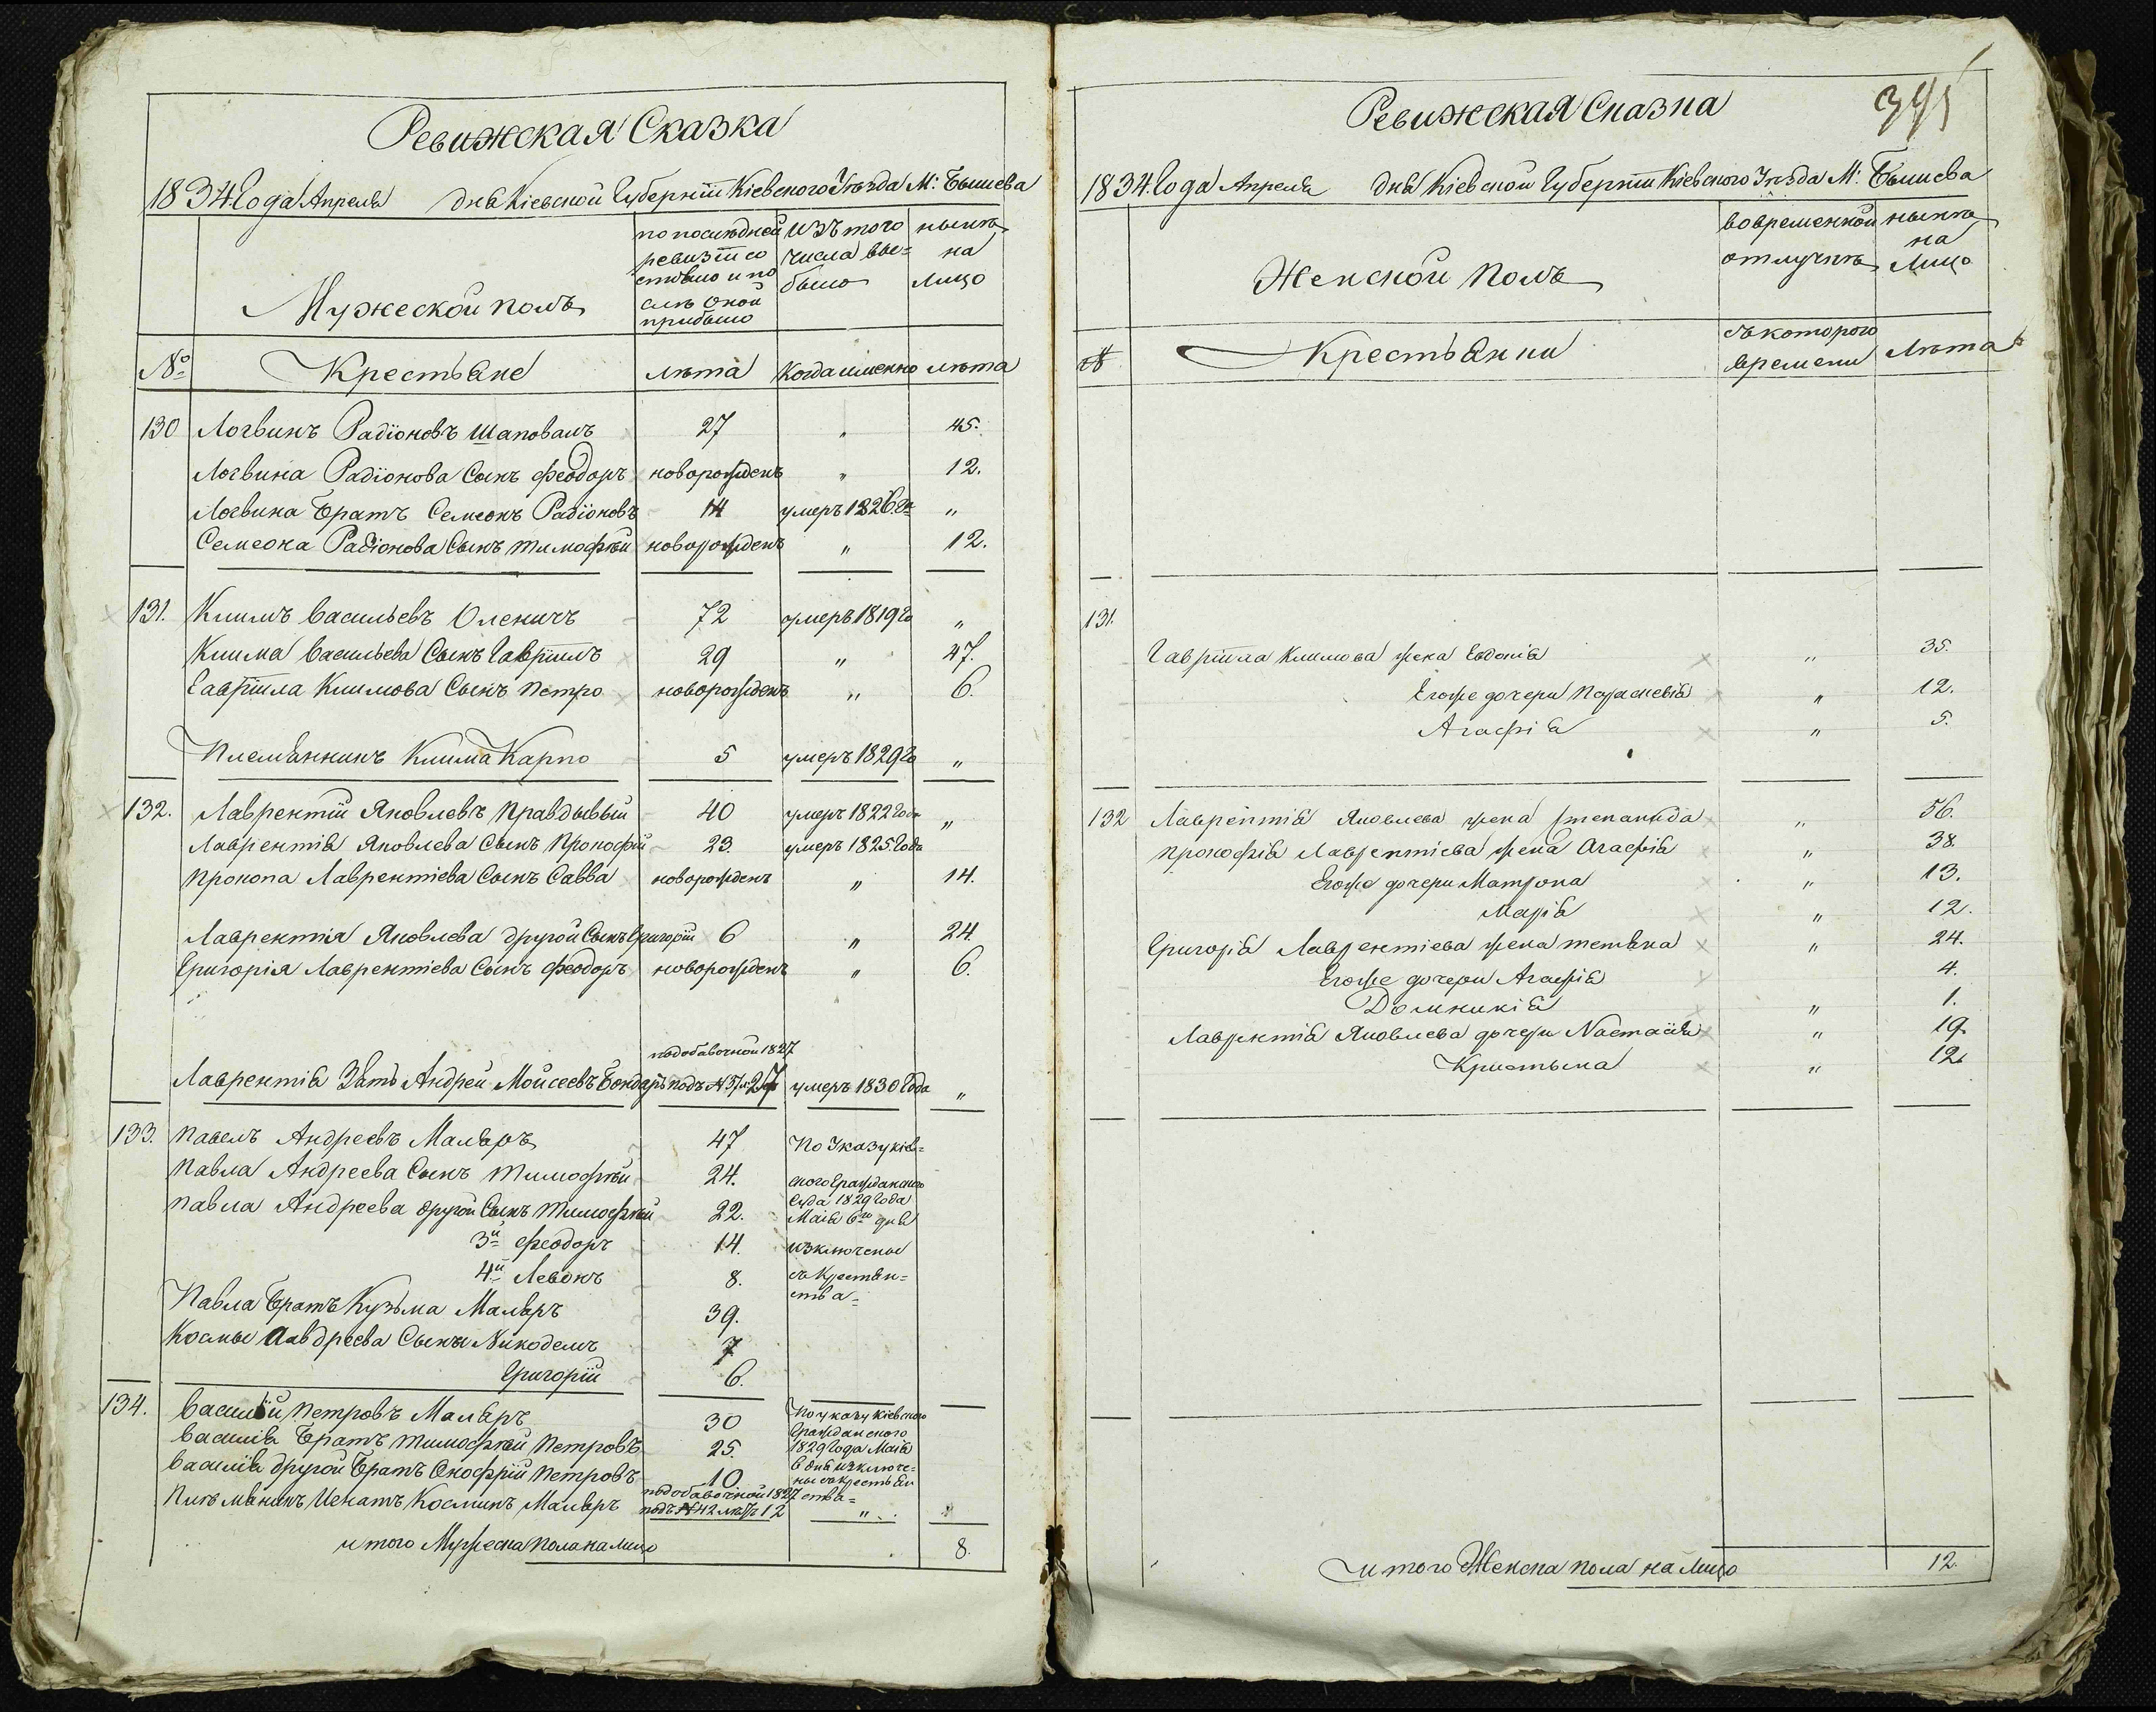 Ревижская Сказка
1834 Года Апреля дня Кіевской Губерніи Кіевского Уѣзда М: Бышева
Мужеской полъ
по последней ревизіи состояло и после оной прибыло
изъ того числа выбыло
нынѣ на лицо
№ Крестьяне лѣта Когда именно лѣта
130 Логвинъ Радіоновъ Шаповалъ 27 „ 45.
Логвина Радіонова Сынъ Феодоръ новорожденъ „ 12.
Логвина Братъ Семеонъ Радіоновъ 14 умеръ 1826 „
Семеона Радіонова Сынъ Тимофѣй новорожденъ „ 12.
131. Климъ Васильевъ Оленичъ 72 умеръ 1819 го „
Клима Васильева Сынъ Гавріилъ 29 „ 47.
Гавріила Климова Сынъ Петро новорожденъ „ 6.
Племянникъ Клима Карпо 5 умеръ 1829 го „
132. Лаврентій Яковлевъ Правдывый 40 умеръ 1822 Года „
Лаврентія Яковлева Сынъ Прокофій 23. умеръ 1825 Года
Прокопа Лаврентіева Сынъ Савва новорожденъ „ 14.
Лаврентія Яковлева другой Сынъ Григорій 6 „ 24.
Григорія Лаврентіева Сынъ Феодоръ новорожденъ „ 6.
подобавочной 1827
Лаврентія Зять Андрей Мойсеевъ Бондаръ подъ № 37 27 умеръ 1830 Года „
133. Павелъ Андреевъ Маляръ 47 По Указу Кіев=
Павла Андреева Сынъ Тимофѣй 24. ского Гражданского
Суда 1829 Года
Павла Андреева другой Сынъ Тимофѣй 22. Маія 6го дня
3й Феодоръ 14. изключены
4й Левонъ 8. съ Крестьян=
ства=
Павла Братъ Кузьма Маляръ 39.
Космы Аавдреева Сыны Никодемъ 7
Григорій 6.
134. Василій Петровъ Маляръ 30 По указу Кіевского
Гражданского
Василія Братъ Тимофѣй Петровъ 25. 1829 Года Маія
6 дня изключе=
Василія другой Братъ Онофрій Петровъ 10 ны съ Крестьян
подобавочной 1827 ства=
Племяникъ Игнатъ Косминъ Маляръ подъ №42 лѣтъ 12 „
итого Мужеска пола на лицо 8.
395
Ревижская Сказка
1834 Года Апреля дня Кіевской Губерніи Кіевского Уѣзда М: Бышева
Женской полъ
во временной отлучкѣ
нынѣ на Лицо
№ Крестьянки съ которого времени Лѣта
131.
Гавріила Климова жена Евдокія „ 35.
Егоже дочери Параскевія „ 12.
Агафія „ 5.
132 Лаврентія Яковлева жена Степанида „ 56.
Прокофія Лаврентіева жена Агафія „ 38.
Егоже дочери Матрона „ 13.
Марія „ 12.
Григорія Лаврентіева жена Тетяна „ 24.
Егоже дочери Агафія 4.
Домникія „ 1.
Лаврентія Яковлева дочери Настасія „ 19.
Кристына „ 12
итого Женска пола на Лицо 12.